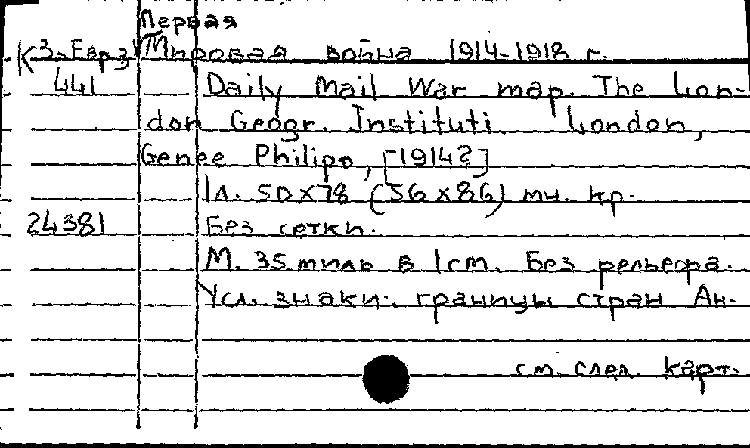 Первая
К 3-Евр 3 Мировая война 1914-1918 г.
441 Daily Mail War map. The Lon-
don Geogr. Instituti. London,
Genee Philipo, [1914?]
1л. 50x78 (56x86) мн. кр.
24381 Без сетки.
М. 35 миль в 1 см. Без рельефа.
Усл. знаки: границы стран Ан-
см. след. карт.